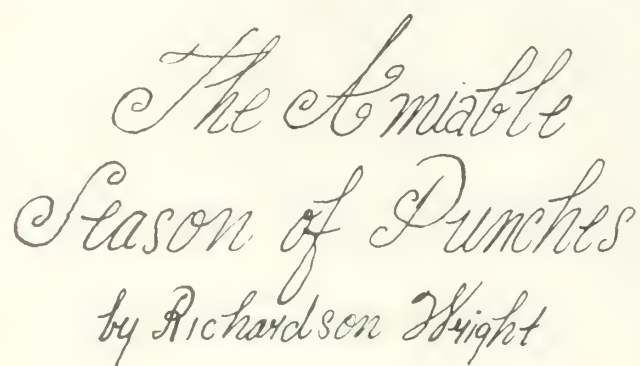 The Amiable
Season of Punches
by Richardson Wright